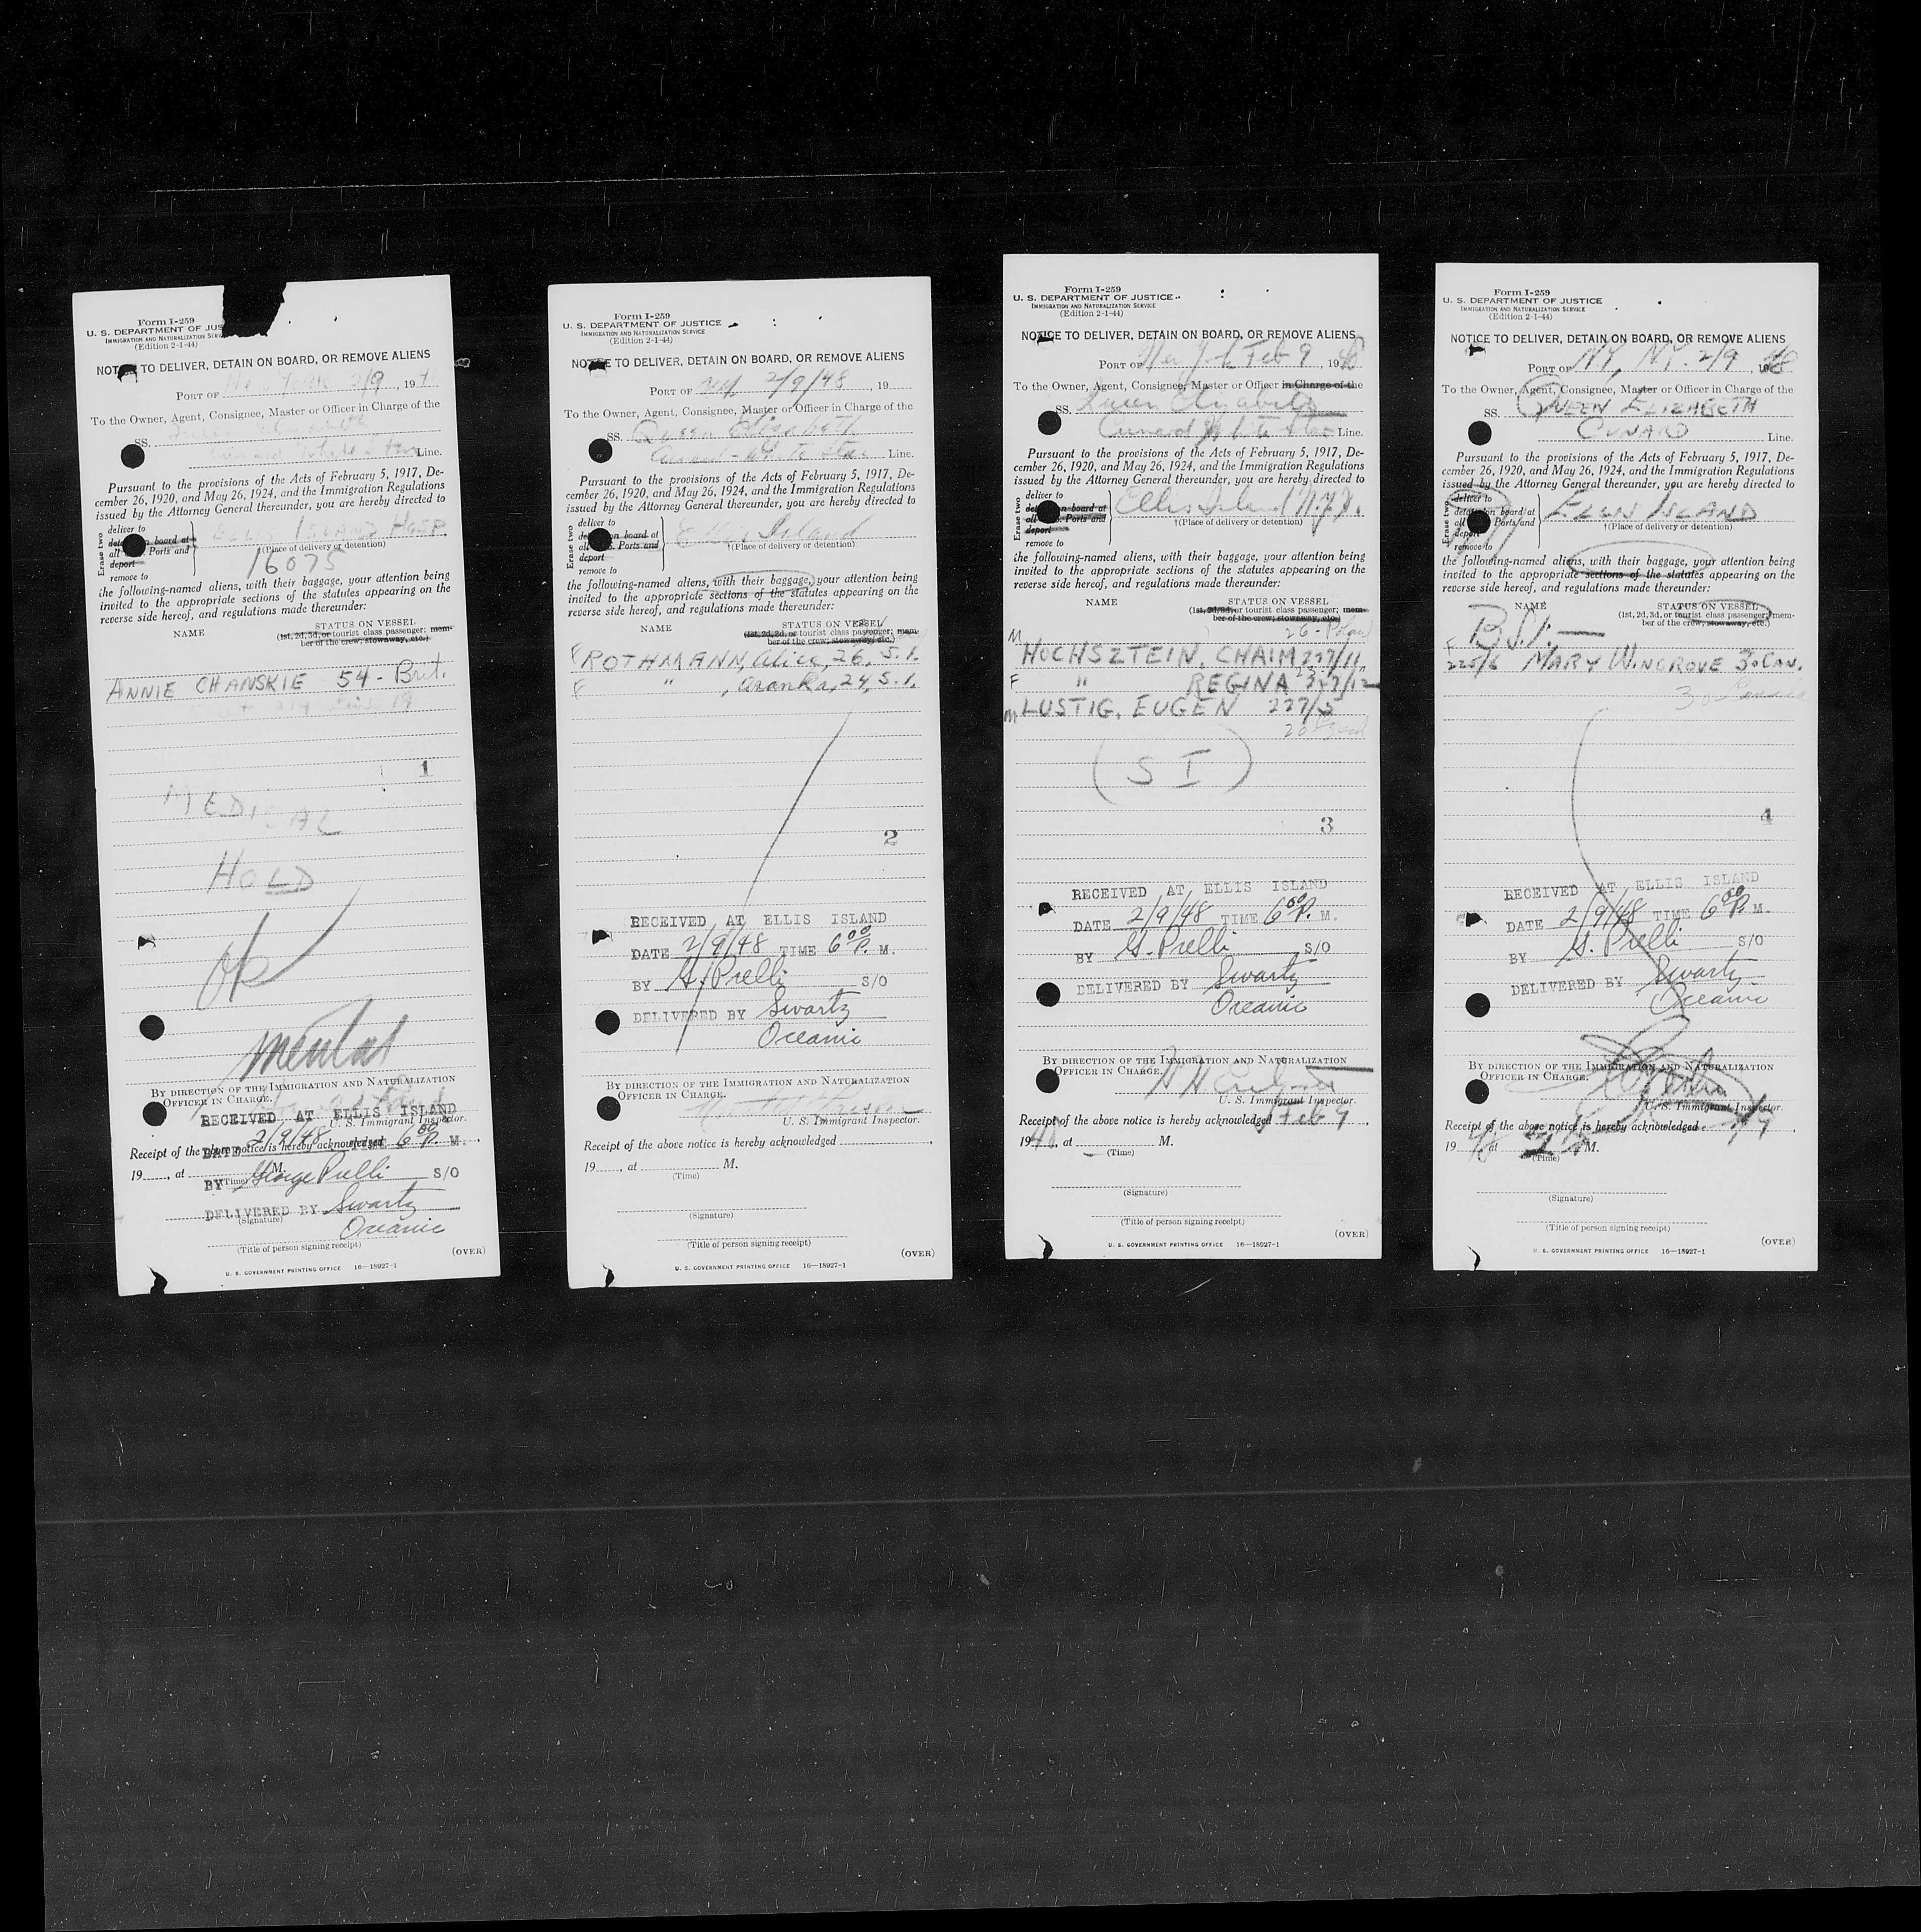 Form I-259
U. S. DEPARTMENT OF JUS
IMMIGRATION AND NATURALIZATION SERV
(Edition 2-1-44)
NOTICE TO DELIVER, DETAIN ON BOARD, OR REMOVE ALIENS
PORT OF New York 2/9, 194
To the Owner, Agent, Consignee, Master or Officer in Charge of the
SS.
White Star Line.
Pursuant to the provisions of the Acts of February 5, 1917, De-
cember 26, 1920, and May 26, 1924, and the Immigration Regulations
issued by the Attorney General thereunder, you are hereby directed to
Erase two
deliver to
detain on board at
all Ports and
deport
remove to
Ellis Island Hosp
†(Place of delivery or detention)
16075
the following-named aliens, with their baggage, your attention being
invited to the appropriate sections of the statutes appearing on the
reverse side hereof, and regulations made thereunder:
NAME STATUS ON VESSEL
(1st, 2d, 3d, or tourist class passenger; mem-
ber of the crew; stowaway, etc.)
ANNIE CHANSKIE 54 - Brit.
1
MEDICAL
HOLD
OK
mental
BY DIRECTION OF THE IMMIGRATION AND NATURALIZATION
OFFICER IN CHARGE.
RECEIVED AT ELLIS ISLAND
U. S. Immigrant Inspector.
Receipt of the above notice is hereby acknowledged
DATE 2/9/48 TIME 6 00 P. M.
19, at M.
(Time)
BY George Prelli S/O
DELIVERED BY Swartz
(Signature)
Oceanic
(Title of person signing receipt)
(OVER)
U. S. GOVERNMENT PRINTING OFFICE 16—18927-1
Form I-259
U. S. DEPARTMENT OF JUSTICE
IMMIGRATION AND NATURALIZATION SERVICE
(Edition 2-1-44)
NOTICE TO DELIVER, DETAIN ON BOARD, OR REMOVE ALIENS
PORT OF NY 2/9/48, 19
To the Owner, Agent, Consignee, Master or Officer in Charge of the
SS. Queen Elizabeth
Cunard-White Star Line.
Pursuant to the provisions of the Acts of February 5, 1917, De-
cember 26, 1920, and May 26, 1924, and the Immigration Regulations
issued by the Attorney General thereunder, you are hereby directed to
Erase two
deliver to
detain on board at
all Ports and
deport
remove to
Ellis Island
†(Place of delivery or detention)
the following-named aliens, with their baggage, your attention being
invited to the appropriate sections of the statutes appearing on the
reverse side hereof, and regulations made thereunder:
NAME STATUS ON VESSEL
(1st, 2d, 3d, or tourist class passenger; mem-
ber of the crew; stowaway, etc.)
F ROTHMANN, Alice, 26, S.I.
F " , Aranka, 24, S.I.
2
RECEIVED AT ELLIS ISLAND
DATE 2/9/48 TIME 6 00 P. M.
BY G. Prelli S/O
DELIVERED BY Swartz
Oceanic
BY DIRECTION OF THE IMMIGRATION AND NATURALIZATION
OFFICER IN CHARGE.
U. S. Immigrant Inspector.
Receipt of the above notice is hereby acknowledged
19, at M.
(Time)
(Signature)
(Title of person signing receipt)
(OVER)
U. S. GOVERNMENT PRINTING OFFICE 16—18927-1
Form I-259
U. S. DEPARTMENT OF JUSTICE
IMMIGRATION AND NATURALIZATION SERVICE
(Edition 2-1-44)
NOTICE TO DELIVER, DETAIN ON BOARD, OR REMOVE ALIENS
PORT OF New York Feb 9, 1948
To the Owner, Agent, Consignee, Master or Officer in Charge of the
SS. Queen Elizabeth
Cunard White Star Line.
Pursuant to the provisions of the Acts of February 5, 1917, De-
cember 26, 1920, and May 26, 1924, and the Immigration Regulations
issued by the Attorney General thereunder, you are hereby directed to
Erase two
deliver to
detain on board at
all Ports and
deport
remove to
Ellis Island N.Y.
†(Place of delivery or detention)
the following-named aliens, with their baggage, your attention being
invited to the appropriate sections of the statutes appearing on the
reverse side hereof, and regulations made thereunder:
NAME STATUS ON VESSEL
(1st, 2d, 3d, or tourist class passenger; mem-
ber of the crew; stowaway, etc.)
26-
M HOCHSZTEIN, CHAIM 227/11
F " REGINA 227/12
M LUSTIG, EUGEN 227/5
20
(S I)
3
RECEIVED AT ELLIS ISLAND
DATE 2/9/48 TIME 6 00 P. M.
BY G. Prelli S/O
DELIVERED BY Swartz
Oceanic
BY DIRECTION OF THE IMMIGRATION AND NATURALIZATION
OFFICER IN CHARGE.
U. S. Immigrant Inspector.
Receipt of the above notice is hereby acknowledged Feb 9,
1948, at M.
(Time)
(Signature)
(Title of person signing receipt)
(OVER)
U. S. GOVERNMENT PRINTING OFFICE 16—18927-1
Form I-259
U. S. DEPARTMENT OF JUSTICE
IMMIGRATION AND NATURALIZATION SERVICE
(Edition 2-1-44)
NOTICE TO DELIVER, DETAIN ON BOARD, OR REMOVE ALIENS
PORT OF N.Y, N.Y. 2/9, 1948
To the Owner, Agent, Consignee, Master or Officer in Charge of the
SS. QUEEN ELIZABETH
CUNARD Line.
Pursuant to the provisions of the Acts of February 5, 1917, De-
cember 26, 1920, and May 26, 1924, and the Immigration Regulations
issued by the Attorney General thereunder, you are hereby directed to
Erase two
deliver to
detain on board at
all Ports and
deport
remove to
ELLIS ISLAND
†(Place of delivery or detention)
the following-named aliens, with their baggage, your attention being
invited to the appropriate sections of the statutes appearing on the
reverse side hereof, and regulations made thereunder:
NAME STATUS ON VESSEL
(1st, 2d, 3d, or tourist class passenger; mem-
ber of the crew; stowaway, etc.)
F
225/6 MARY WINGROVE 30 CAN.
30 Canada
4
RECEIVED AT ELLIS ISLAND
DATE 2/9/48 TIME 6 00 P. M.
BY G. Prelli S/O
DELIVERED BY Swartz
Oceanic
BY DIRECTION OF THE IMMIGRATION AND NATURALIZATION
OFFICER IN CHARGE.
U. S. Immigrant Inspector.
Receipt of the above notice is hereby acknowledged 2/9
1948 at M.
(Time)
(Signature)
(Title of person signing receipt)
(OVER)
U. S. GOVERNMENT PRINTING OFFICE 16—18927-1